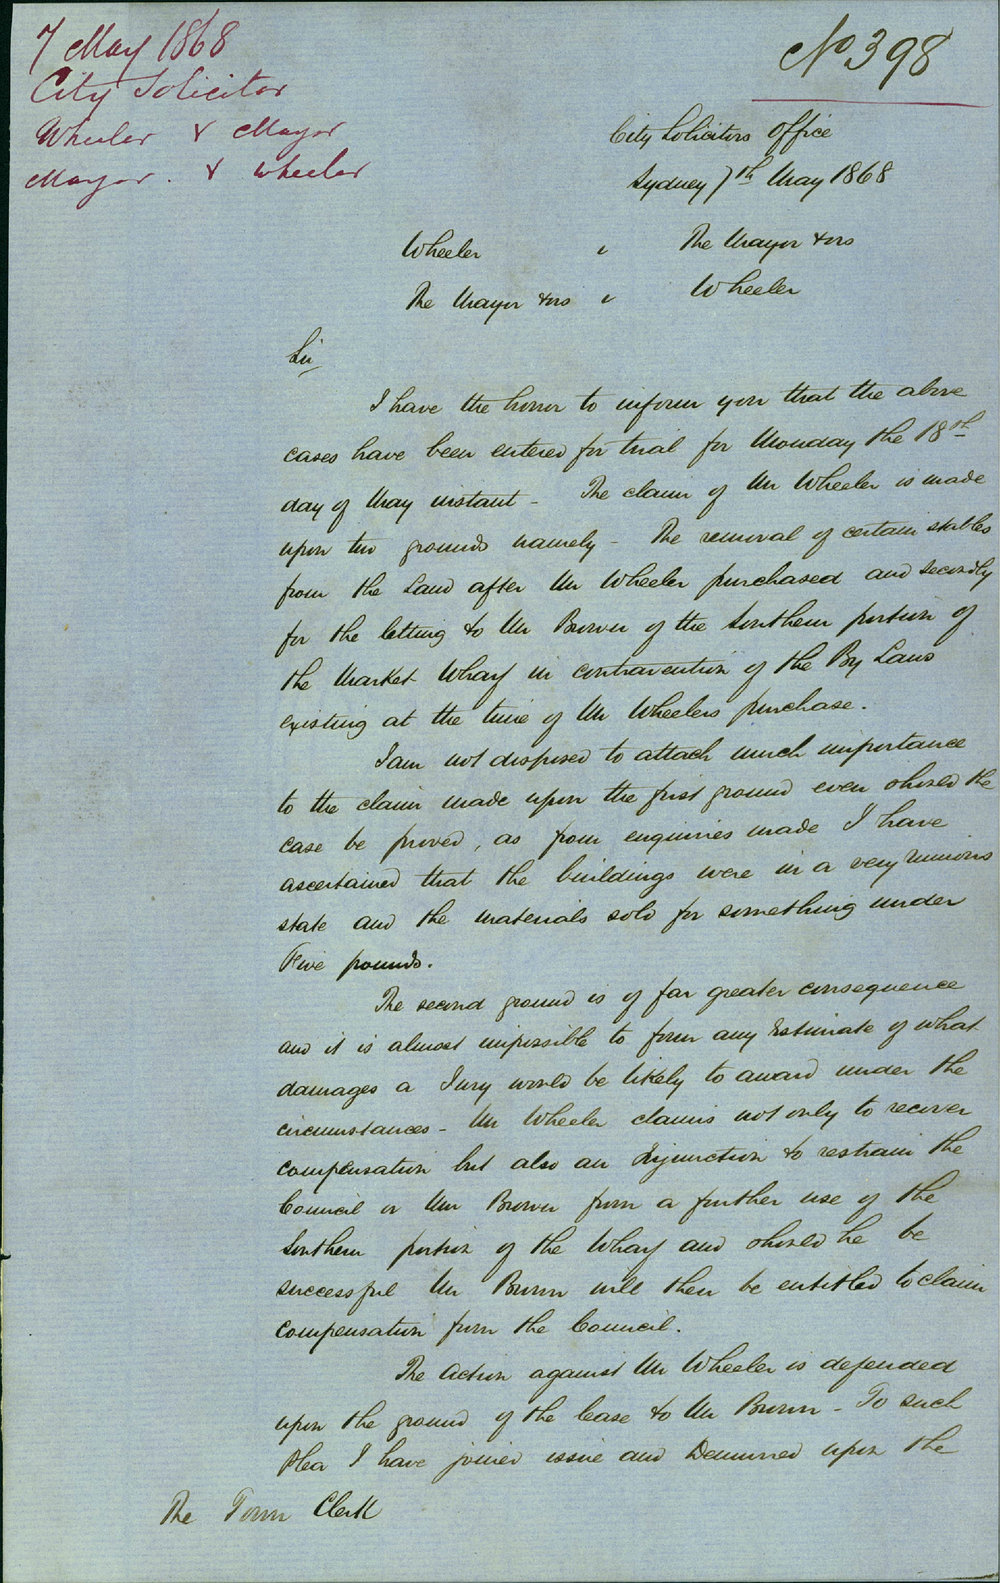 7 May 1868
City Solicitor
Wheeler v Mayor
Mayor v Wheeler
No 398
City Solicitors Office
Sydney 7th May 1868
Wheeler v The Mayor & ors
The Mayor & ors v Wheeler
Sir
I have the honor to inform you that the above
cases have been entered for trial for Monday the 18th
day of May instant - The claim of Mr Wheeler is made
upon two grounds namely - The removal of certain stables
from the Land after Mr Wheeler purchased and secondly
for the letting to Mr Brown of the Southern portion of
the Market Wharf in contravention of the By Laws
existing at the time of Mr Wheelers purchase.
I am not disposed to attach much importance
to the claim made upon the first ground even should the
case be proved, as from enquiries made I have
ascertained that the buildings were in a very ruinous
state and the materials sold for something under
Five pounds.
The second ground is of far greater consequence
and it is almost impossible to form any Estimate of what
damages a Jury would be likely to award under the
circumstances - Mr Wheeler claims not only to recover
compensation but also an Injunction to restrain the
Council or Mr Brown from a further use of the
Southern portion of the Wharf and should he be
successful Mr Brown will then be entitled to claim
compensation from the Council.
The Action against Mr Wheeler is defended
upon the ground of the lease to Mr Brown - To such
plea I have joined issue and Demurred upon the
The Town Clerk